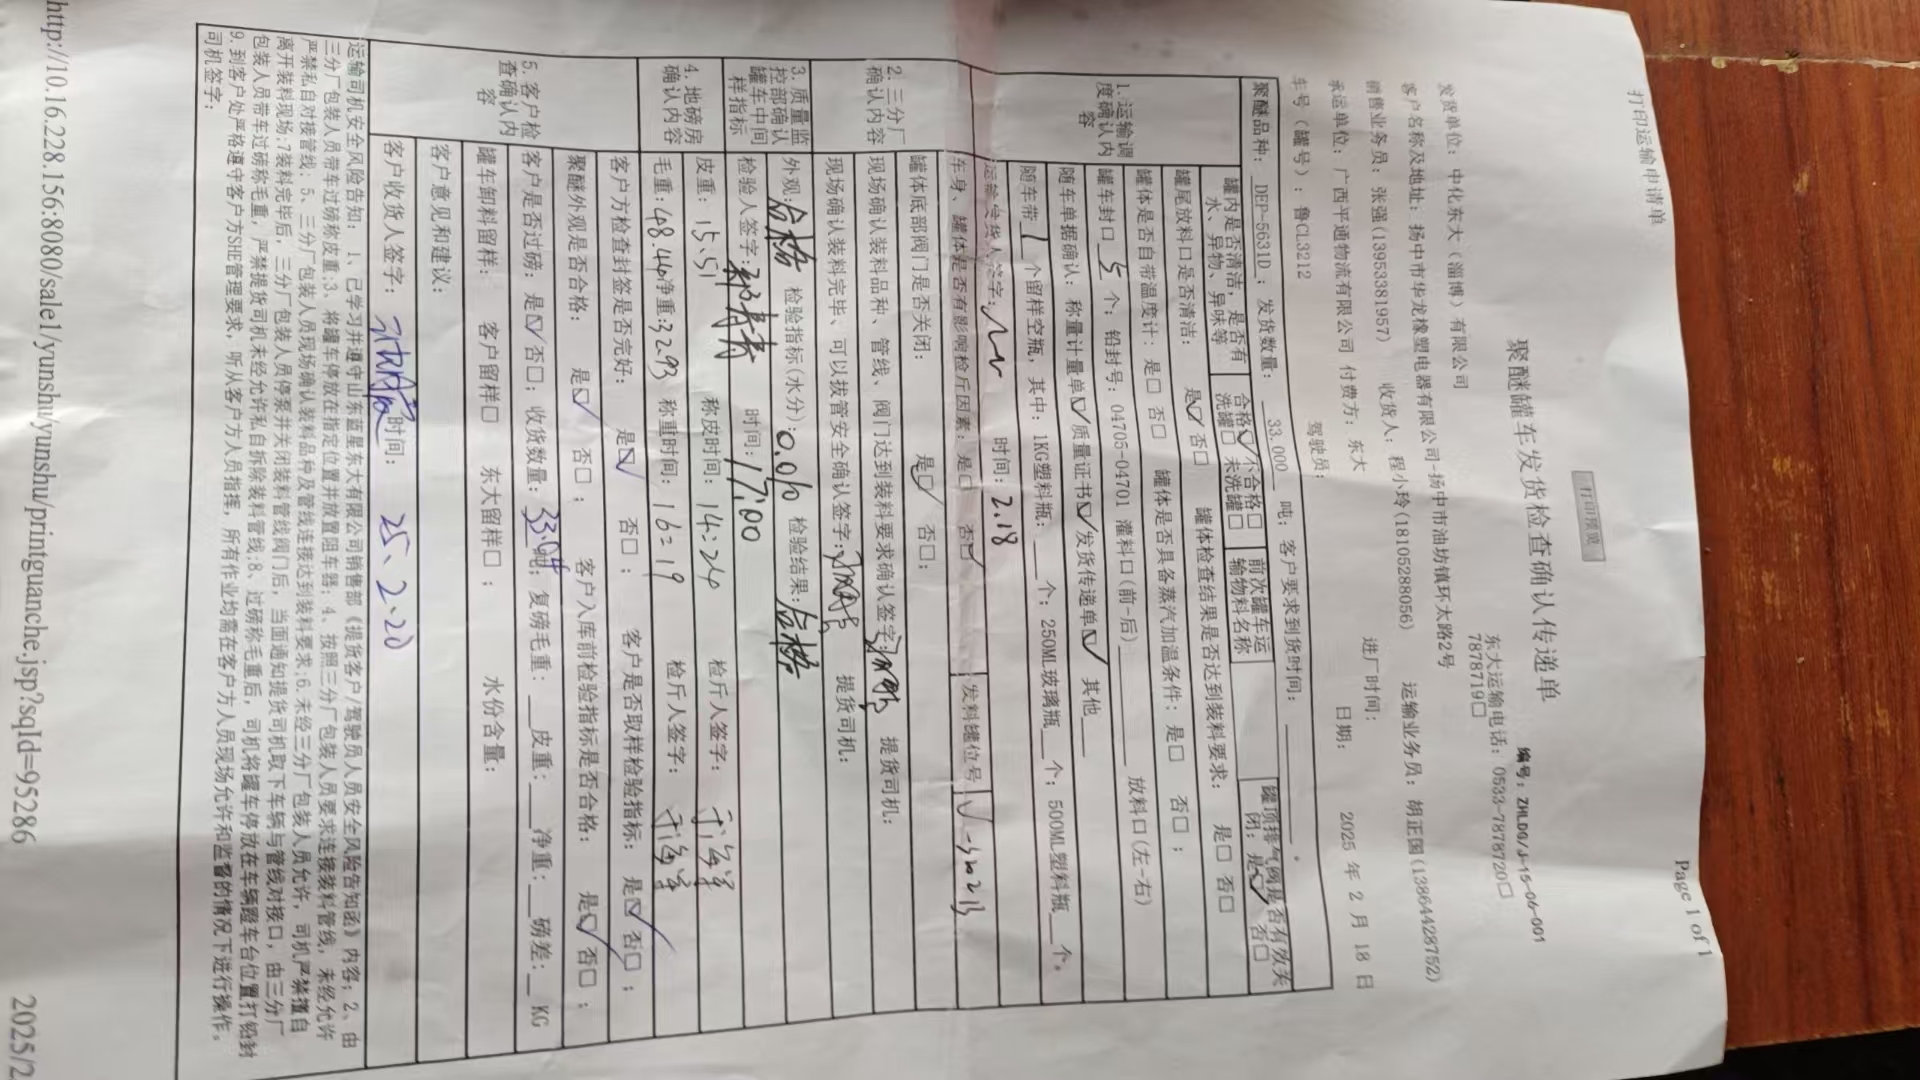 打印运输申请单
Page 1 of 1
打印预览
聚醚罐车发货检查确认传递单
编号: ZHLDG/J-15-06-001
东大运输电话: 0533-7878720□
7878719□
发货单位: 中化东大(淄博)有限公司
客户名称及地址: 扬中市华龙橡塑电器有限公司-扬中市油坊镇环太路2号
销售业务员: 张强(13953381957) 收货人: 程小玲(18105288056) 运输业务员: 胡正国(13864428752)
承运单位: 广西平通物流有限公司 付费方: 东大 进厂时间:
车号(罐号): 鲁CL3212 驾驶员: 日期: 2025 年 2 月 18 日
聚醚品种: DEP-5631D; 发货数量: 33.000 吨; 客户要求到货时间: ______。
1. 运输调度确认内容
罐内是否清洁, 是否有水、异物、异味等
合格☑不合格□
洗罐□ 未洗罐□
前次罐车运输物料名称
罐顶排气阀是否有效关闭: 是☑ 否□
罐尾放料口是否清洁: 是☑ 否□ 罐体检查结果是否达到装料要求: 是□ 否□
罐体是否自带温度计: 是□ 否□ 罐体是否具备蒸汽加温条件: 是□ 否□;
罐车封口 5 个; 铅封号: 04705-04701 灌料口(前-后) ______ 放料口(左-右)
随车单据确认: 称量计量单☑质量证书☑发货传递单☑ 其他___
随车带 1 个留样空瓶, 其中: 1KG塑料瓶: ___个; 250ML玻璃瓶___个; 500ML塑料瓶___个。
运输发货人签字: 时间: 2.18
2. 三分厂确认内容
车身、罐体是否有影响检斤因素: 是□ 否☑ 发料罐位号
罐体底部阀门是否关闭: 是☑ 否□;
现场确认装料品种、管线、阀门达到装料要求确认签字: 提货司机:
现场确认装料完毕、可以拔管安全确认签字: 提货司机:
3. 质量监控部确认罐车中间样指标
外观: 合格 检验指标(水分): 0.01% 检验结果: 合格
检验人签字: 时间: 17:00
4. 地磅房确认内容
皮重: 15.51 称皮时间: 14:24 检斤人签字:
毛重: 48.44净重: 32.93 称重时间: 16:19 检斤人签字:
5. 客户检查确认内容
客户方检查封签是否完好: 是☑ 否□; 客户是否取样检验指标: 是☑ 否□;
聚醚外观是否合格: 是☑ 否□; 客户入库前检验指标是否合格: 是☑ 否□;
客户是否过磅: 是☑否□; 收货数量: 33.04吨; 复磅毛重: ___皮重: ___净重: ___磅差: ___KG
罐车卸料留样: 客户留样□ 东大留样□; 水份含量:
客户意见和建议:
客户收货人签字: 时间: 25、2.20
运输司机安全风险告知: 1、己学习并遵守山东蓝星东大有限公司销售部《提货客户/驾驶员人员安全风险告知函》内容; 2、由
三分厂包装人员带车过磅称皮重;3、将罐车停放在指定位置并放置阻车器; 4、按照三分厂包装人员要求连接装料管线, 未经允许
严禁私自对接管线; 5、三分厂包装人员现场确认装料品种及管线连接达到装料要求;6.未经三分厂包装人员允许, 司机严禁擅自
离开装料现场;7装料完毕后, 三分厂包装人员停泵并关闭装料管线阀门后, 当面通知提货司机取下车辆与管线对接口, 由三分厂
包装人员带车过磅称毛重, 严禁提货司机未经允许私自拆除装料管线;8、过磅称毛重后, 司机将罐车停放在车辆蹬车台位置打铅封
9. 到客户处严格遵守客户方SHE管理要求, 听从客户方人员指挥, 所有作业均需在客户方人员现场允许和监督的情况下进行操作。
司机签字:
http://10.16.228.156:8080/sale1/yunshu/yunshu/printguanche.jsp?sqId=95286
2025/2